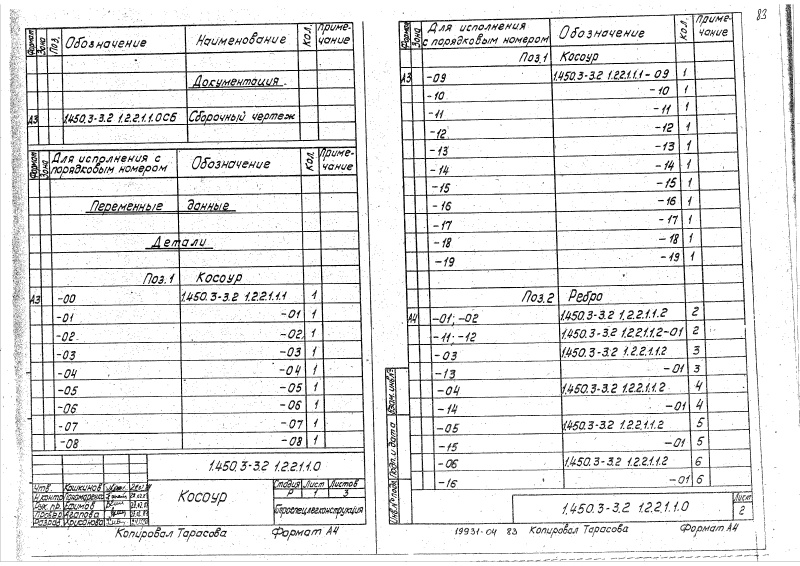 83
Формат Зона Поз. Обозначение Наименование Кол. Примечание
Документация
А3 1.450.3-3.2 1.2.2.1.1.0СБ Сборочный чертеж
Формат Зона Для исполнения с порядковым номером Обозначение Кол. Примечание
Переменные данные
Детали
Поз.1 Косоур
А3 -00 1.450.3-3.2 1.2.2.1.1.1 1
-01 -01 1
-02 -02 1
-03 -03 1
-04 -04 1
-05 -05 1
-06 -06 1
-07 -07 1
-08 -08 1
1.450.3-3.2 1.2.2.1.1.0
Утв. Кошкинов
Н.контр Пономаренко
Рук. пр. Ефимов
Провер Агапова
Разраб
Косоур
Стадия Лист Листов
Р 1 3
Гипроспецлегконструкция
Копировал Тарасова Формат А4
Формат Зона Для исполнения с порядковым номером Обозначение Кол. Примечание
Поз.1 Косоур
А3 -09 1.450.3-3.2 1.2.2.1.1.1-09 1
-10 -10 1
-11 -11 1
-12 -12 1
-13 -13 1
-14 -14 1
-15 -15 1
-16 -16 1
-17 -17 1
-18 -18 1
-19 -19 1
Поз.2 Ребро
А4 -01; -02 1.450.3-3.2 1.2.2.1.1.2 2
-11; -12 1.450.3-3.2 1.2.2.1.1.2-01 2
-03 1.450.3-3.2 1.2.2.1.1.2 3
-13 -01 3
-04 1.450.3-3.2 1.2.2.1.1.2 4
-14 -01 4
-05 1.450.3-3.2 1.2.2.1.1.2 5
-15 -01 5
-06 1.450.3-3.2 1.2.2.1.1.2 6
-16 -01 6
Инв.№ подл. Подп. и дата Взам. инв.№
1.450.3-3.2 1.2.2.1.1.0
Лист
2
19931-04 83 Копировал Тарасова Формат А4